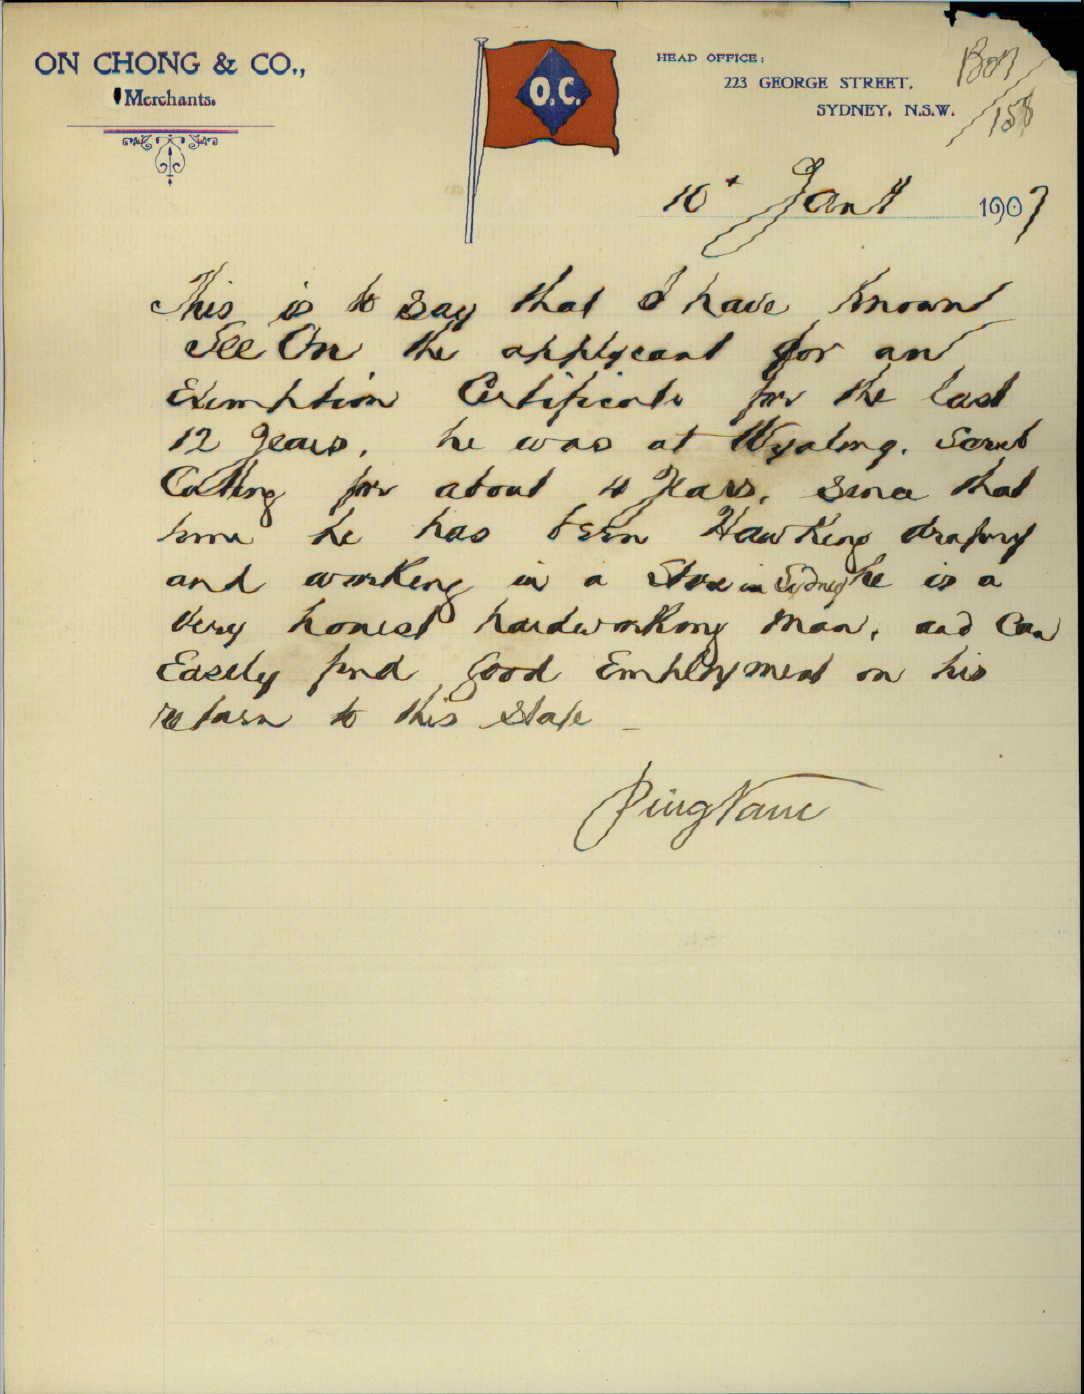 ON CHONG & CO.,
Merchants.
O.C.
HEAD OFFICE:
223 GEORGE STREET.
SYDNEY, N.S.W.
158
10 Jany 1907
This is to say that I have known
See On the applycant for an
Exemption Certificate for the last
12 Years, he was at Wyalong. Scrub
Cutting for about 4 Years, since that
time he has been Hawking drapery
and working in a Store in Sidney he is a
very honest hardworking man, and Can
Easely find good Employment on his
return to this State
Ping Nam